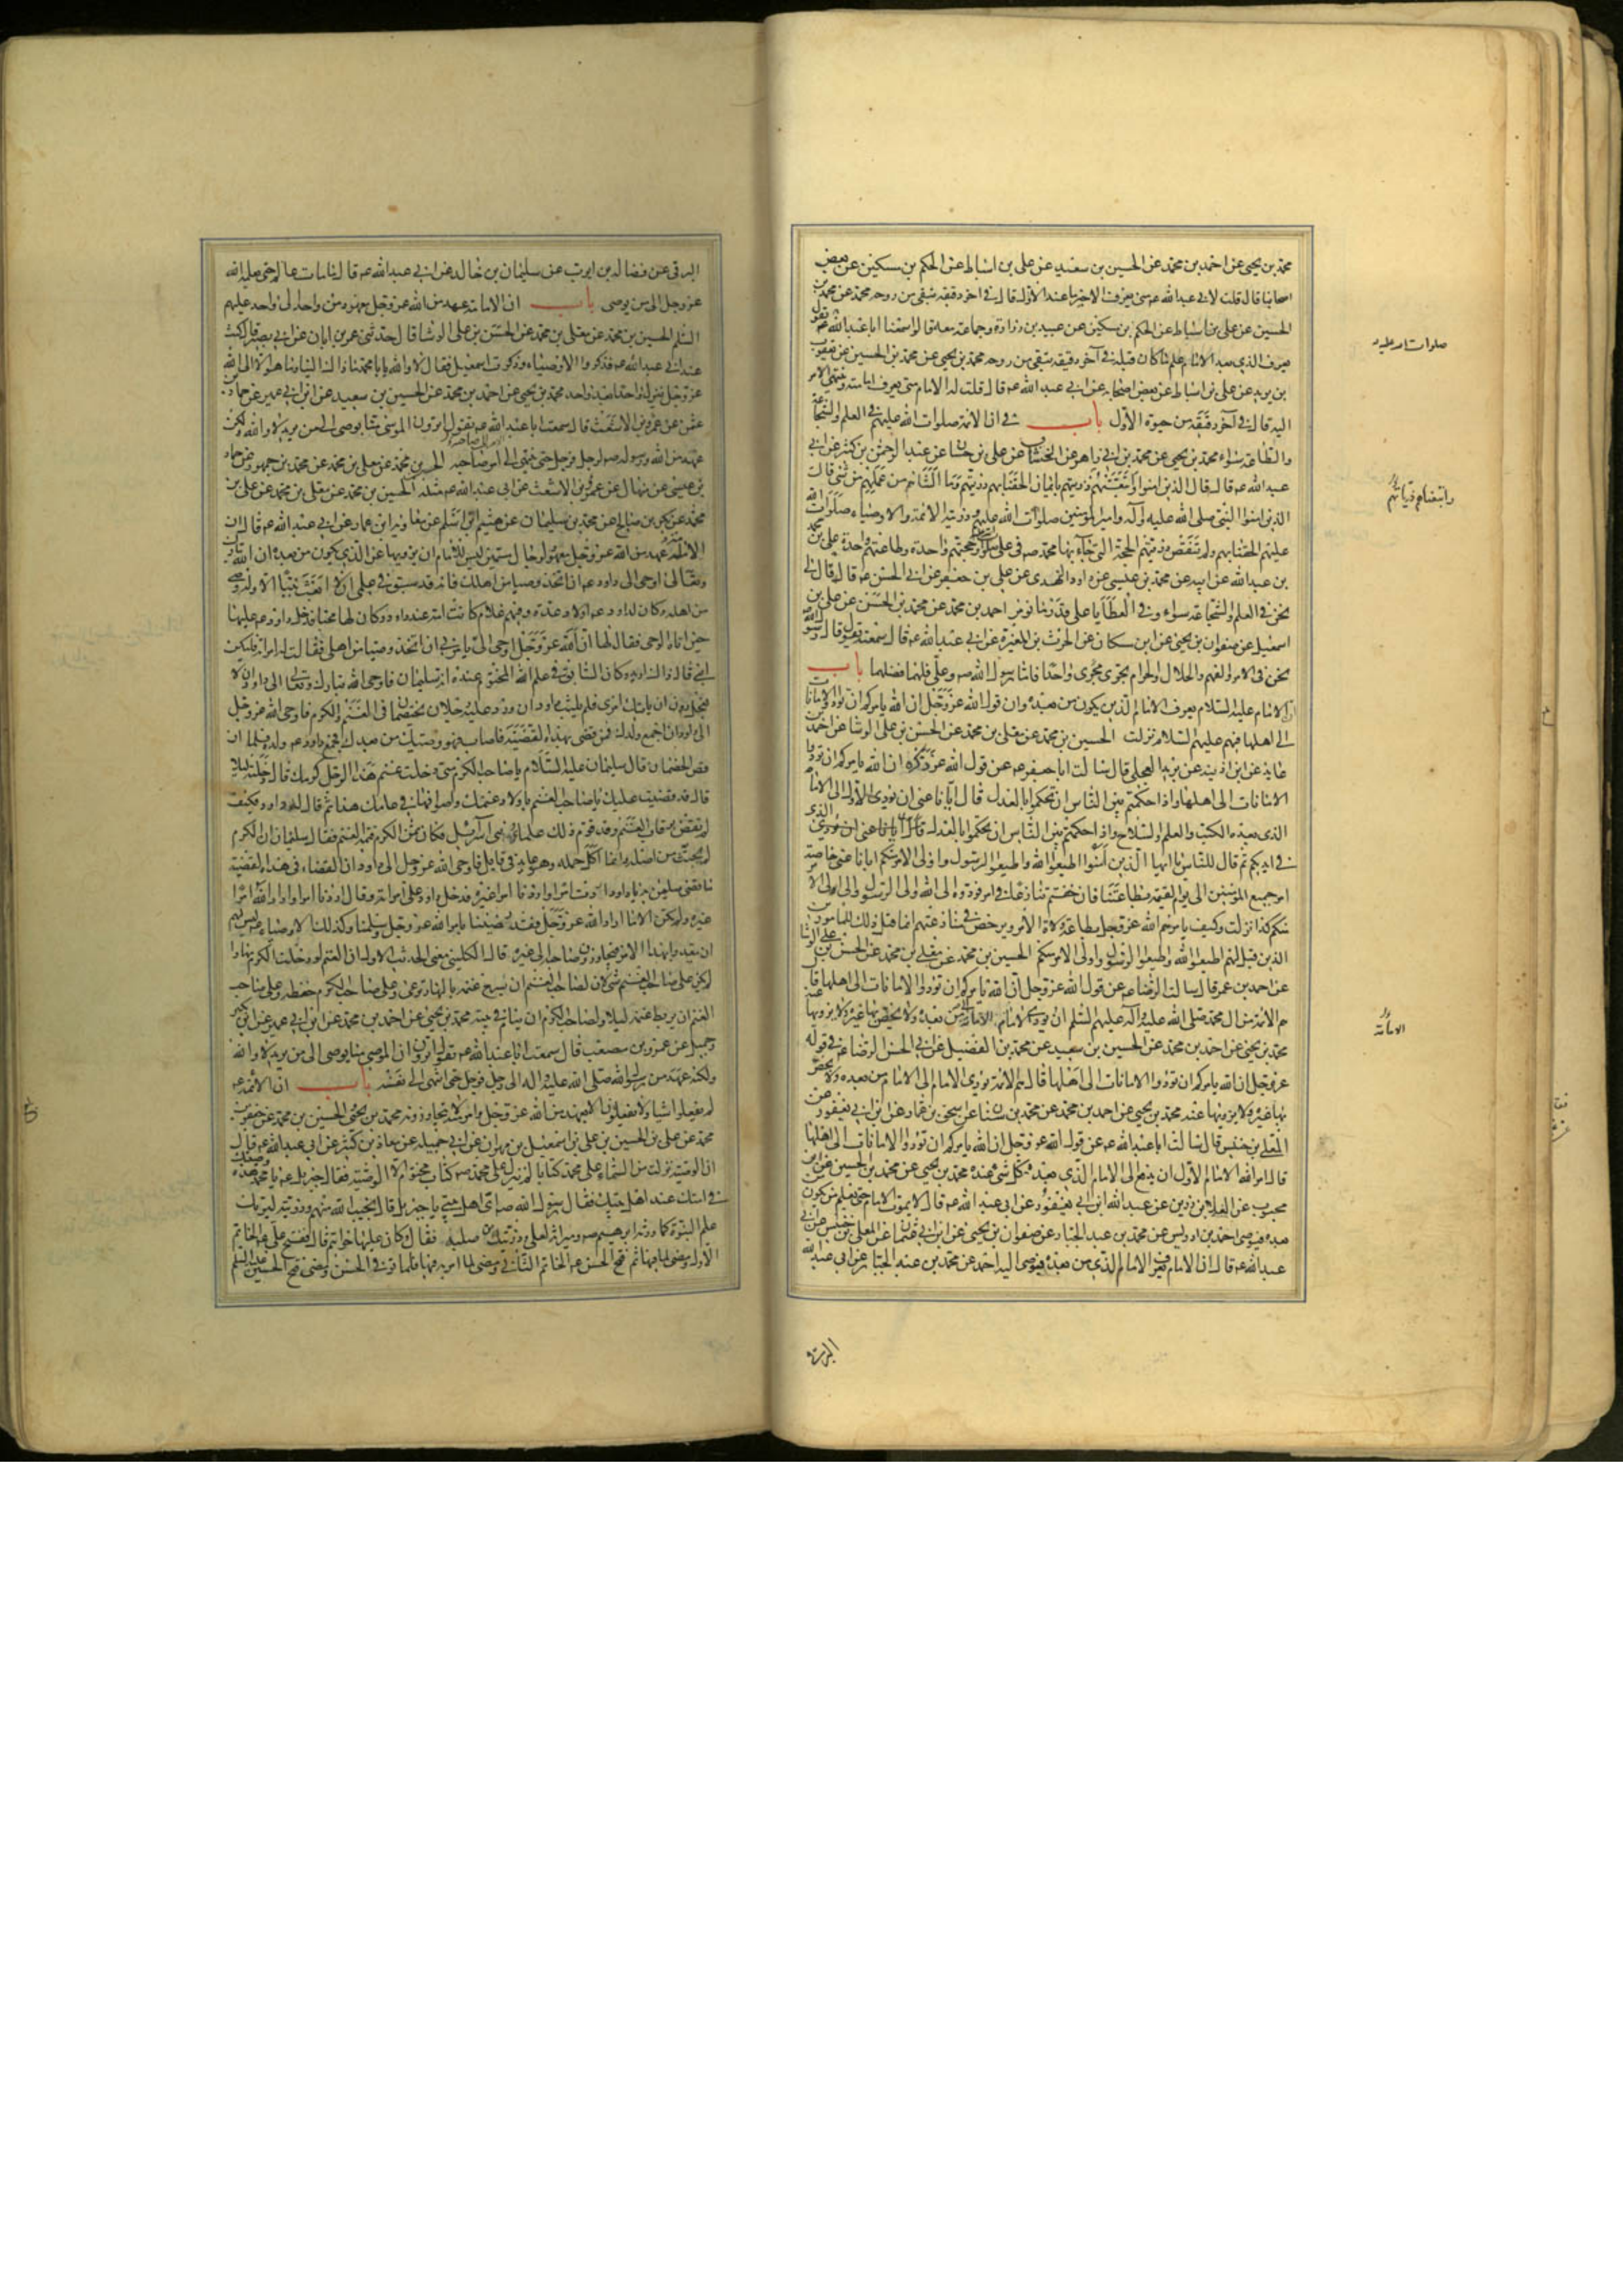 محمد بن يحيى عن احمد بن محمد عن الحسين بن سعيد عن على بن اسباط عن الحكم بن مسكين عن بعض
اصحابنا قال قلت لابى عبد الله عه متى يعرف الاخير ما عند الاول قال فى اخر دقيقة تبقى من روحه محمد عن محمد بن
الحسين عن على بن اسباط عن الحكم بن مسكين عن عبيد بن زرارة وجماعة معه قالوا سمعنا ابا عبد الله عه يقول
يعرف الذى بعد الامام علم من كان قبله فى آخر دقيقة تبقى من روحه محمد بن يحيى عن محمد بن الحسين عن يعقوب
بن يزيد عن على بن اسباط عن بعض اصحابه عن ابى عبد الله عه قال قلت له الامام متى يعرف امامته وينتهى الامر
اليه قال فى آخر دقيقة من حيوة الأول باب فى ان الائمة صلوات الله عليهم فى العلم والشجاعة
والطاعة سواء محمد بن يحيى عن محمد بن ابى زاهر عن الخشاب عن على بن حسان عن عبد الرحمن بن كثير عن ابى
عبد الله عه قال قال الذين امنوا واتبعتهم ذريتهم بايمان الحقنا بهم ذريتهم وما التناهم من عملهم من شئ قال
الذين امنوا النبى صلى الله عليه وآله وامير المؤمنين صلوات الله عليهم وذريته الائمة والاوصياء صلوات الله
عليهم الحقنا بهم ولم تنقص ذريتهم الحجة التى جاء بها محمد صه فى على وحجتهم واحدة وطاعتهم واحدة على بن محمد
بن عبد الله عن ابيه عن محمد بن عيسى عن داود النهدى عن على بن جعفر عن ابى الحسن عه قال قال لى
نحن فى العلم والشجاعة سواء وفى العطايا على قدر ما نومر احمد بن محمد عن محمد بن الحسن عن على بن
اسمعيل عن صفوان بن يحيى عن ابن مسكان عن الحرث بن المغيرة عن ابى عبد الله عه قال سمعته يقول قال رسول الله
نحن فى الامر والفهم والحلال والحرام نجرى مجرى واحدا فاما رسول الله صه وعلى فلهما فضلهما باب
ان الامام عليه السلام يعرف الامام الذى يكون من بعده وان قول الله عز وجل ان الله يامركم ان تؤدوا الامانات
الى اهلها فيهم عليهم السلام نزلت الحسين بن محمد عن معلى بن محمد عن الحسن بن على الوشا عن احمد
عايذ عن ابن اذينه عن بريد العجلى قال سالت ابا جعفر عه عن قول الله عز ذكره ان الله يامركم ان تؤدوا
الامانات الى اهلها واذا حكمتم بين الناس ان تحكموا بالعدل قال ايانا عنى ان يؤدى الأول الى الامام
الذى بعده الكتب والعلم والسلاح واذا حكمتم بين الناس ان تحكموا بالعدل الذى
فى ايديكم ثم قال للناس يا ايها الذين آمنوا اطيعوا الله واطيعوا الرسول واولى الامر منكم ايانا عنى خاصة
امر جميع المؤمنين الى يوم القيمة بطاعتنا فان خفتم تنازعا فى امر فردوه الى الله والى الرسول والى اولى الامر
منكم كذا نزلت وكيف يامرهم الله عز وجل بطاعة ولاة الأمر ويرخص فى منازعتهم انما قيل ذلك للمامورين
الذين قيل لهم اطيعوا الله واطيعوا الرسول واولى الامر منكم الحسين بن محمد عن معلى بن محمد عن الحسن بن على الوشا
عن احمد بن عمر قال سالت الرضا عه عن قول الله عز وجل ان الله يامركم ان تؤدوا الامانات الى اهلها قال
هم الائمة من ال محمد صلى الله عليه وآله عليهم السلم ان يؤدى الامام الامانة الى من بعده ولا يخص بها غيره ولا يزويها عنه
محمد بن يحيى عن احمد بن محمد عن الحسين بن سعيد عن محمد بن الفضيل عن ابى الحسن الرضا عه فى قوله
عز وجل ان الله يامركم ان تؤدوا الامانات الى اهلها قال هم الائمة يؤدى الامام الى الامام من بعده ولا يخص
بها غيره ولا يزويها عنه محمد بن يحيى عن احمد بن محمد عن محمد بن سنان عن اسحق بن عمار عن ابن ابى يعفور عن
المعلى بن خنيس قال سالت ابا عبد الله عه عن قول الله عز وجل ان الله يامركم ان تؤدوا الامانات الى اهلها
قال امر الله الامام الأول ان يدفع الى الامام الذى بعده كل شئ عنده محمد بن يحيى عن محمد بن الحسين عن ابن
محبوب عن العلا بن رزين عن عبد الله ابن ابى يعفور عن ابى عبد الله عه قال لا يموت الامام حتى يعلم من يكون
بعده فيوصى احمد بن ادريس عن محمد بن عبد الجبار عن صفوان بن يحيى عن ابن ابى عثمان عن المعلى بن خنيس عن ابى
عبد الله عه قال ان الامام يعرف الامام الذى من بعده فيوصى اليه احمد عن محمد بن عبد الجبار عن ابى عبد الله
البرقى
صلوات الله عليه
واتبعناهم ذرياتهم
الامانة
البرقى عن فضالة بن ايوب عن سليمان بن خالد عن ابى عبد الله عه قال ما مات عالم حتى يعلمه الله
عز وجل الى من يوصى باب ان الامامة عهد من الله عز وجل معهود من واحد الى واحد عليهم
السلم الحسين بن محمد عن معلى بن محمد عن الحسن بن على الوشا قال حدثنى عمر بن ابان عن ابى بصير قال كنت
عند ابى عبد الله عه فذكروا الاوصياء وذكرت اسمعيل فقال لا والله يا با محمد ما ذاك الينا وما هو الا الى الله
عز وجل ينزل واحدا بعد واحد محمد بن يحيى عن احمد بن محمد عن الحسين بن سعيد عن ابن ابى عمير عن حماد بن
عثمن عن عمرو بن الاشعث قال سمعت ابا عبد الله عه يقول اترون الموصى منا يوصى الى من يريد لا والله ولكن
عهد من الله ورسوله صه لرجل فرجل حتى ينتهى الامر الى صاحبه الحسين بن محمد عن معلى بن محمد عن محمد بن جمهور عن حماد
بن عيسى عن منهال عن عمرو بن الاشعث عن ابى عبد الله عه مثله الحسين بن محمد عن معلى بن محمد عن على بن
محمد عن بكر بن صالح عن محمد بن سليمان عن عيثم ابن اسلم عن معاوية ابن عمار عن ابى عبد الله عه قال ان
الامامة عهد من الله عز وجل معهود لرجال مسمين ليس للامام ان يزويها عن الذى يكون من بعده ان الله تبارك
وتعالى اوحى الى داود عه ان اتخذ وصيا من اهلك فانه قد سبق فى علمى ان لا ابعث نبيا الا وله وصى
من اهله وكان لداود عه اولاد عدة وفيهم غلام كانت امه عند داود وكان لها محبا فدخل داود عه عليها
حين اتاه الوحى فقال لها ان الله عز وجل اوحى الى يامرنى ان اتخذ وصيا من اهلى فقالت له امراته فليكن
ابنى قال ذاك اريد وكان السابق فى علم الله المحتوم عنده انه سليمان فاوحى الله تبارك وتعالى الى داود ان لا
تعجل دون ان ياتيك امرى فلم يلبث داود ان ورد عليه رجلان يختصمان فى الغنم والكرم فاوحى الله عز وجل
الى داود ان اجمع ولدك فمن قضى بهذه القضية فاصاب فهو وصيك من بعدك فجمع داود عه ولده فلما ان
قص الخصمان قال سليمان عليه السلام يا صاحب الكرم متى دخلت غنم هذا الرجل كرمك قال دخلته ليلا
قال قد قضيت عليك يا صاحب الغنم باولاد غنمك واصوافها فى عامك هذا ثم قال له داود فكيف
لم تقض برقاب الغنم وقد قوم ذلك علماء بنى اسرائيل فكان ثمن الكرم قيمة الغنم فقال سليمان ان الكرم
لم يجتث من اصله وانما اكل حمله وهو عايد فى قابل فاوحى الله عز وجل الى داود ان القضاء فى هذه القضية
ما قضى سليمن به يا داود اردت امرا واردنا امرا غيره فدخل داود على امراته فقال اردنا امرا واراد الله امرا
غيره ولم يكن الا ما اراد الله عز وجل فقد رضينا بامر الله عز وجل وسلمنا وكذلك الاوصياء عه ليس لهم
ان يتعدوا بهذا الامر فيجاوزون صاحبه الى غيره قال الكلينى معنى الحديث الاول ان الغنم لو دخلت الكرم نهارا
لم يكن على صاحب الغنم شئ لان لصاحب الغنم ان يسرح غنمه بالنهار ترعى وعلى صاحب الكرم حفظه وعلى صاحب
الغنم ان يربط غنمه ليلا ولصاحب الكرم ان ينام فى بيته محمد بن يحيى عن احمد بن محمد عن ابن ابى عمير عن ابن بكير
وجميل عن عمرو بن مصعب قال سمعت ابا عبد الله عه يقول اترون ان الموصى منا يوصى الى من يريد لا والله
ولكنه عهد من رسول الله صلى الله عليه واله الى رجل فرجل حتى انتهى الى نفسه باب ان الائمة عه
لم يفعلوا شيا ولا يفعلون الا بعهد من الله عز وجل وامر منه لا يتجاوزونه محمد بن يحيى والحسين بن محمد عن جعفر بن
محمد عن على بن الحسين بن على بن اسمعيل بن مهران عن ابى جميلة عن معاذ بن كثير عن ابى عبد الله عه قال
ان الوصية نزلت من السماء على محمد كتابا لم ينزل على محمد صه كتاب مختوم الا الوصية فقال جبريل عه يا محمد هذه وصيتك
فى امتك عند اهل بيتك فقال رسول الله صه اى اهل بيتى يا جبريل قال نجيب الله منهم وذريته ليرثك
علم النبوة كما ورثه ابرهيم عه وميراثه لعلى وذريتك من صلبه فقال كان عليها خواتيم قال ففتح على عه الخاتم
الأول ومضى لما فيها ثم فتح الحسن عه الخاتم الثانى ومضى لما امر به فيها فلما توفى الحسن ومضى فتح الحسين عليه السلم